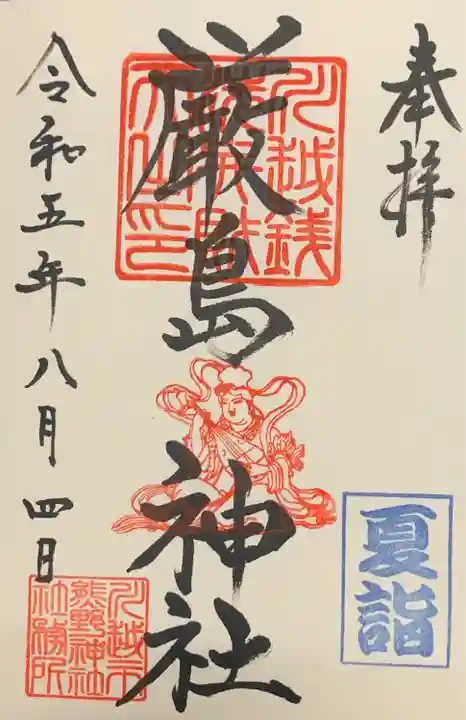 奉拝
夏詣
川越銭
厳島神社
令和五年八月四日
川越市
熊野神社
社務所